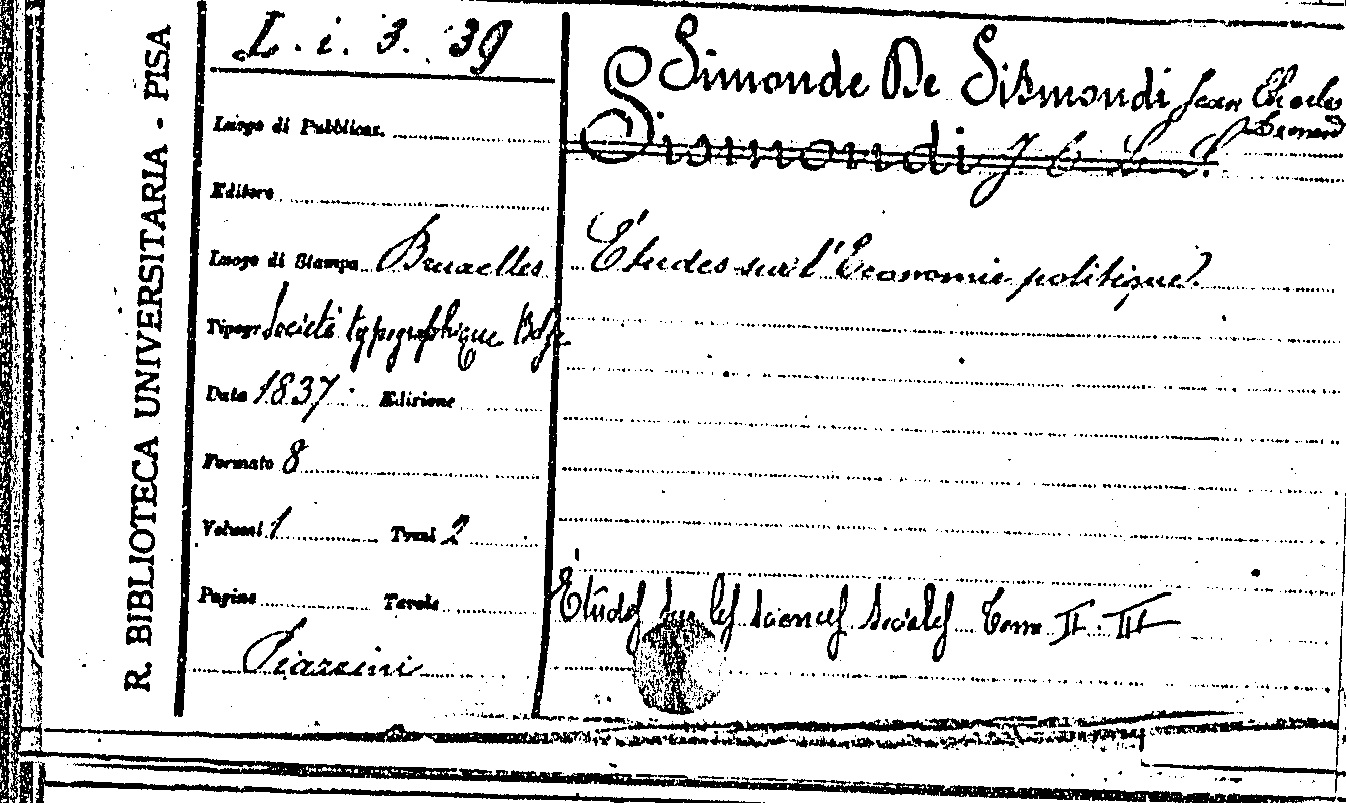 R. BIBLIOTECA UNIVERSITARIA - PISA
L. i. 3. 39
Luogo di Pubblicaz.
Editore
Luogo di Stampa Bruxelles
Tipogr. Société typographique Belge
Data 1837 Edizione
Formato 8
Volumi 1 Tomi 2
Pagine Tavole
Piazzini
Simonde De Sismondi Jean Charles
Leonard
Sismondi J C L S.
Études sur l'Economie politique.
Études sur les sciences sociales Tome II. III